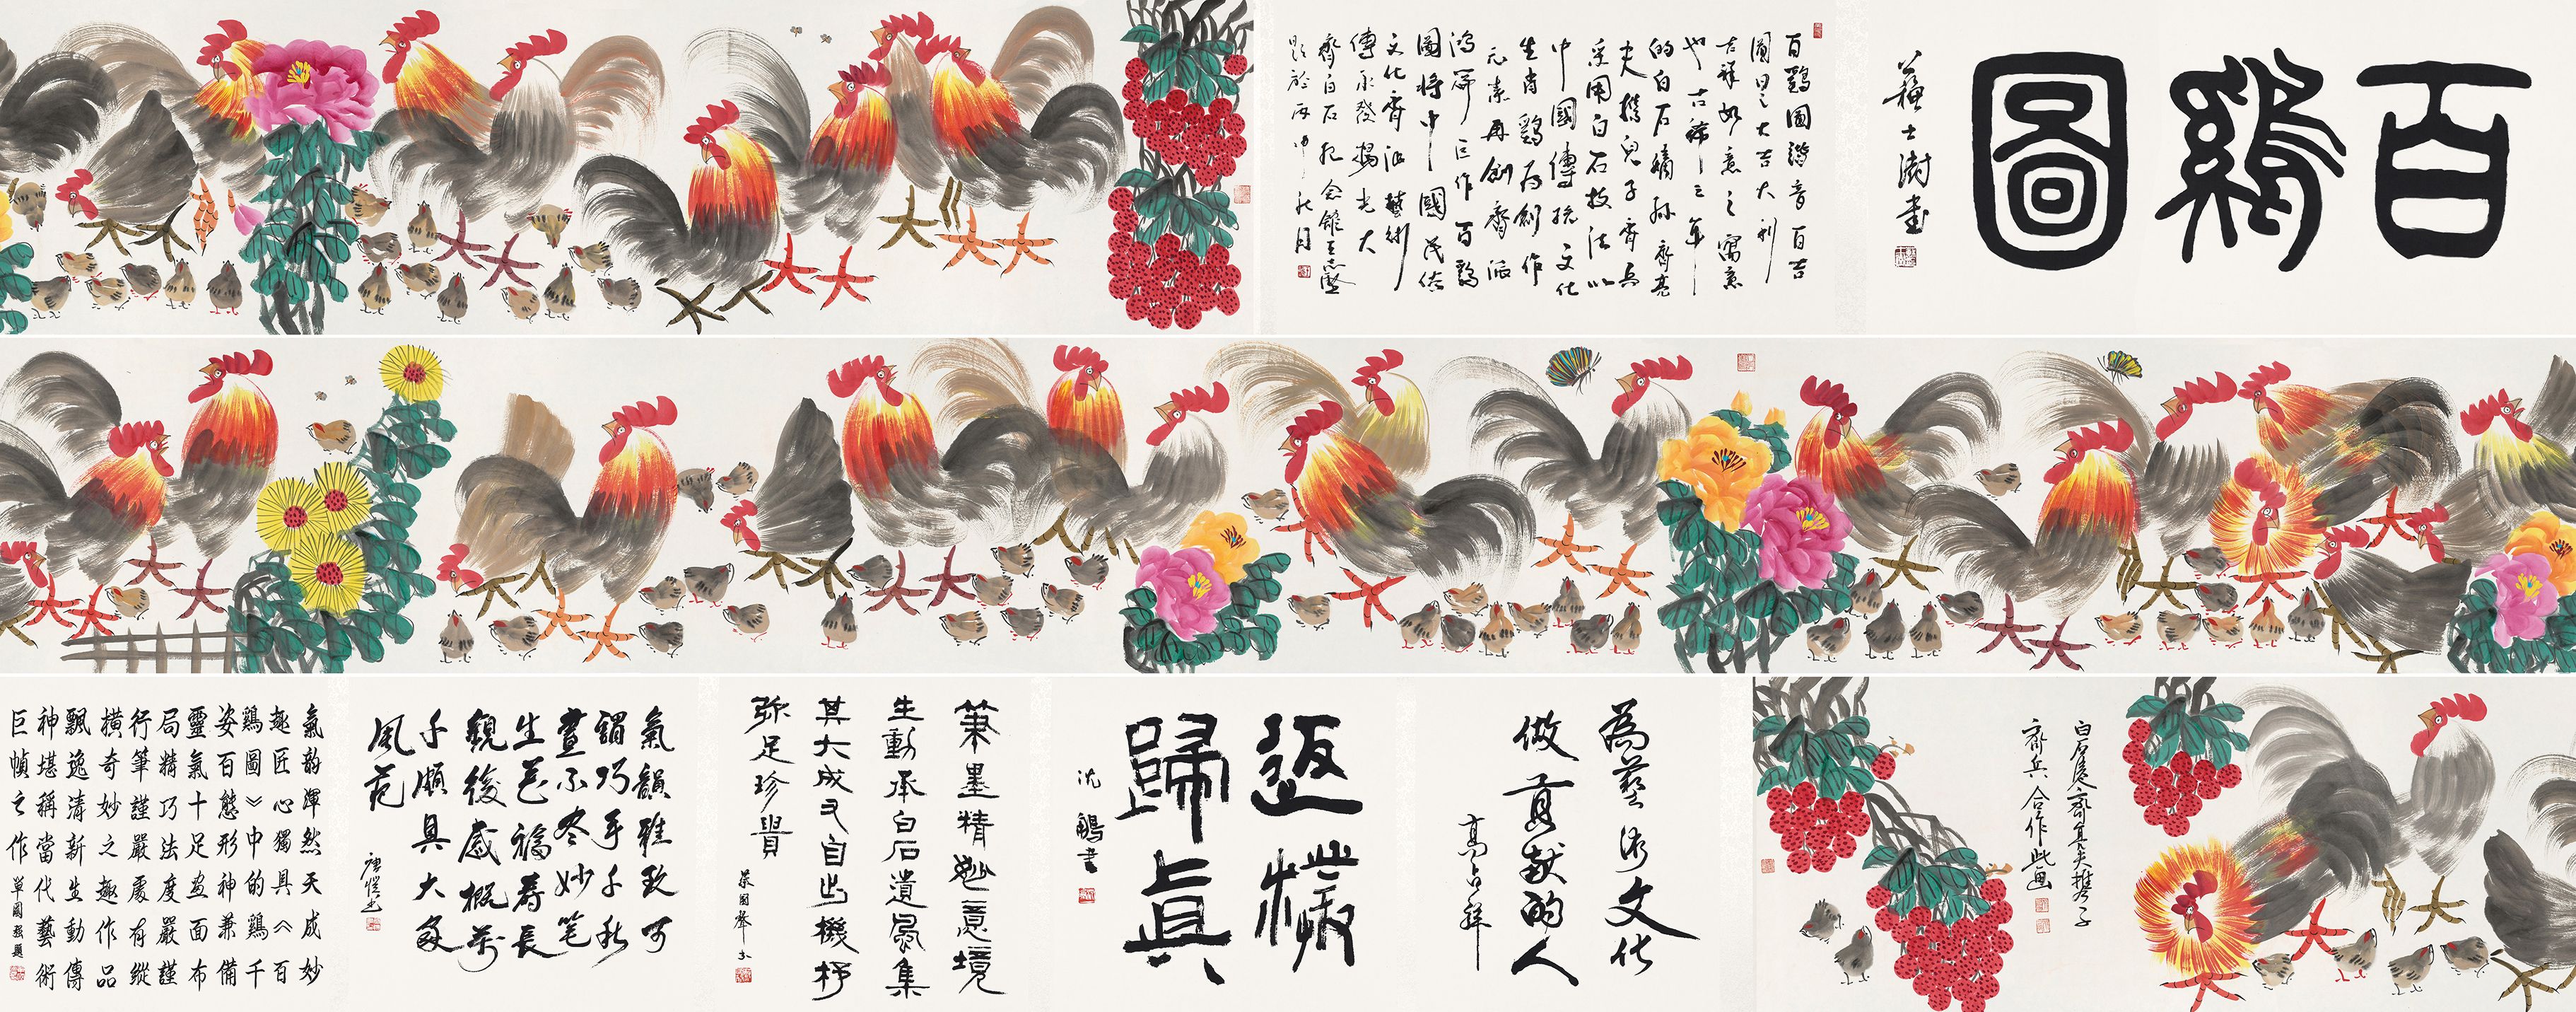 百鷄圖
蘇士澍書
百鷄圖諧音百吉
圖曰之大吉大利
吉祥如意之寓意
也古稀之年
的白石嫡孫齊
夫携兒子齊兵
采用白石技法以
中國傳統文化
生肖鷄为創作
元素再創齊派
鴻篇巨作百鷄
圖將中國民俗
文化齊派藝術
傳承發揚光大
齊白石紀念館王志堅
題於丙申秋月
白石齊其夫携子
齊兵合作此画
為藝術文化
做貢献的人
高占祥
返樸
歸真
沈鵬書
筆墨精妙意境
生動承白石遺風集
其大成又自出機杼
弥足珍貴
蔡國聲
氣韻雅致可
謂巧手千秋
畫不尽妙笔
生花福壽長
觀後感概万
千頗具大家
風范
氣韵渾然天成妙
趣匠心獨具《百
鷄圖》中的鷄千
姿百態形神兼備
靈氣十足画面布
局精巧法度嚴謹
行筆謹嚴處有縱
橫奇妙之趣作品
飄逸清新生動傳
神堪稱當代藝術
巨幀之作
單國强題